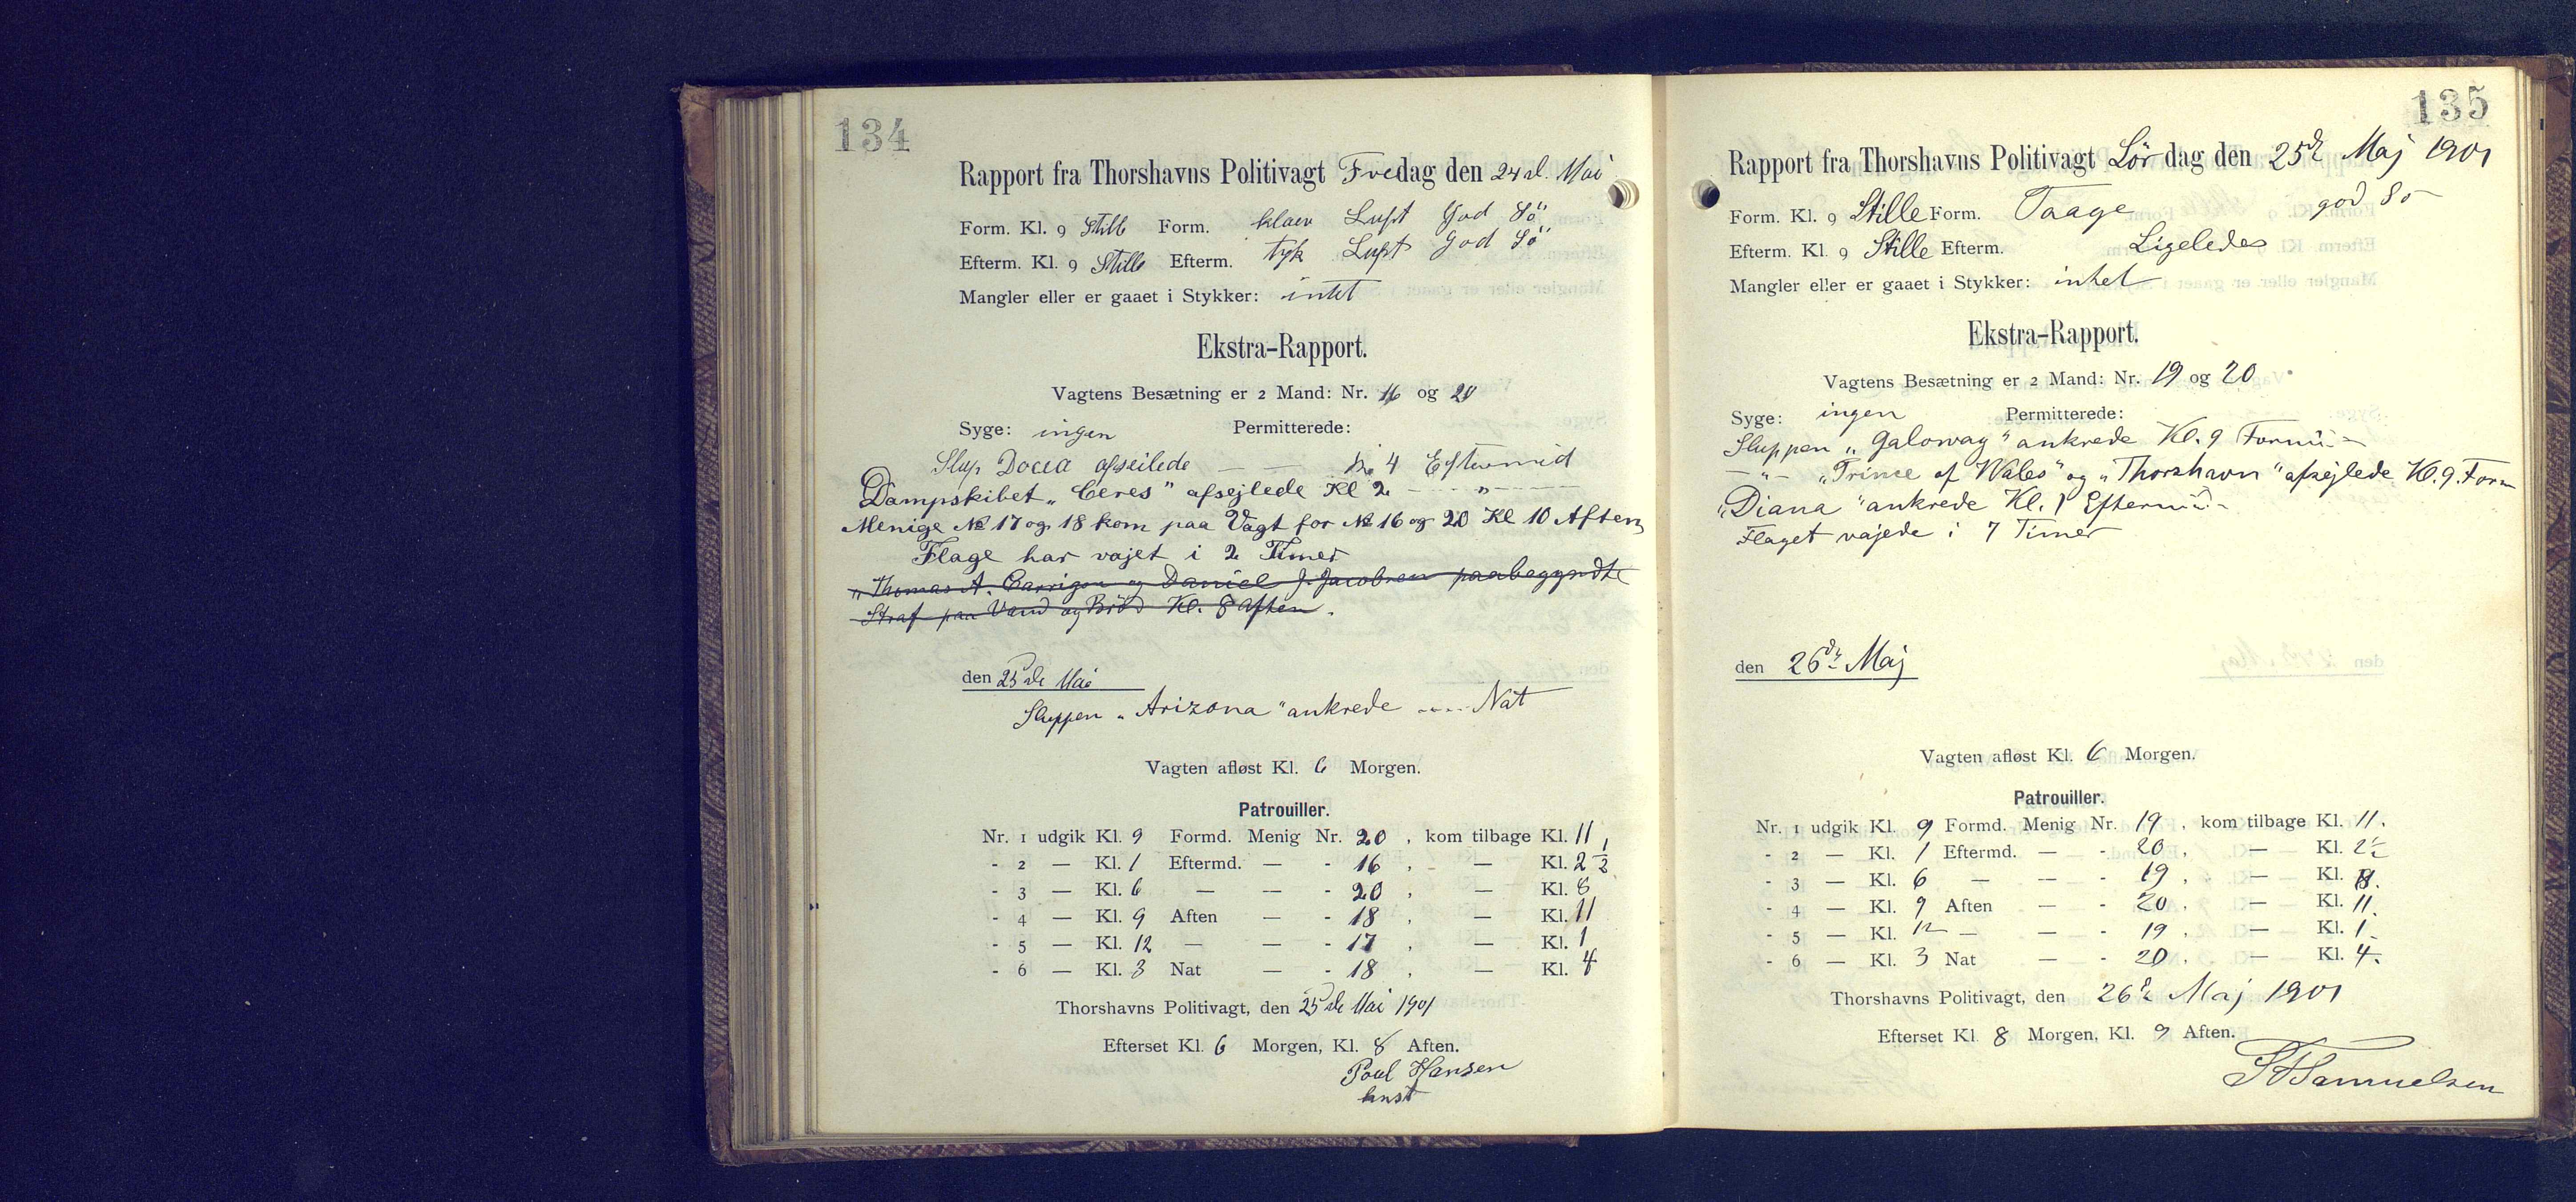 134
Rapport fra Thorshavns Politivagt Fredag den 24 d. Mai
Form. Kl. 9 Stille Form. klaer Luft God Sö
Efterm. Kl. 9 Stille Efterm. tyk Luft God Sö
Mangler eller er gaaet i Stykker: intet
Ekstra-Rapport.
Vagtens Besætning er 2 Mand: Nr. 16 og 20
Syge: ingen Permitterede:
Slup afseilede — — Kl 4 Eftermid
Dampskibet „Ceres" afsejlede Kl 2 — " —
Menige No 17 og 18 kom paa Vagt for No 16 og 20 Kl 10 Aften
Flage har vajet i 2 Timer
„Thomas A. Carrigan og Daniel J. Jacobsen paabegyndte
Straf paa Vand og Bröd Kl. 8 Aften.
den 25 de Mai
Sluppen „Arizona" ankrede .... Nat
Vagten afløst Kl. 6 Morgen.
Patrouiller.
Nr. 1 udgik Kl. 9 Formd. Menig Nr. 20, kom tilbage Kl. 11
- 2 — Kl. 1 Eftermd. — - 16, — Kl. 2 1/2
- 3 — Kl. 6 — — - 20, — Kl. 8
- 4 — Kl. 9 Aften — - 18, — Kl. 11
- 5 — Kl. 12 — — - 17, — Kl. 1
- 6 — Kl. 3 Nat — - 18, — Kl. 4
Thorshavns Politivagt, den 25 de Mai 1901
Efterset Kl. 6 Morgen, Kl. 8 Aften.
Poul Hansen
knst
135
Rapport fra Thorshavns Politivagt Lördag den 25d Maj 1901
Form. Kl. 9 Stille Form. Taage god Sö
Efterm. Kl. 9 Stille Efterm. Ligeledes
Mangler eller er gaaet i Stykker: intet
Ekstra-Rapport.
Vagtens Besætning er 2 Mand: Nr. 19 og 20
Syge: ingen Permitterede:
Sluppen „Galoway" ankrede Kl. 9 Formi
— " — „Prince of Wales" og „Thorshavn" afsejlede Kl. 9. Form
„Diana" ankrede Kl. 1 Eftermi
Flaget vajede i 7 Timer
den 26d Maj
Vagten afløst Kl. 6 Morgen.
Patrouiller.
Nr. 1 udgik Kl. 9 Formd. Menig Nr. 19, kom tilbage Kl. 11.
- 2 — Kl. 1 Eftermd. — - 20, — Kl. 2 1/2
- 3 — Kl. 6 — — - 19, — Kl. 8.
- 4 — Kl. 9 Aften — - 20, — Kl. 11.
- 5 — Kl. 12 — — - 19, — Kl. 1.
- 6 — Kl. 3 Nat — - 20, — Kl. 4.
Thorshavns Politivagt, den 26d Maj 1901
Efterset Kl. 8 Morgen, Kl. 9 Aften.
Samuelsen